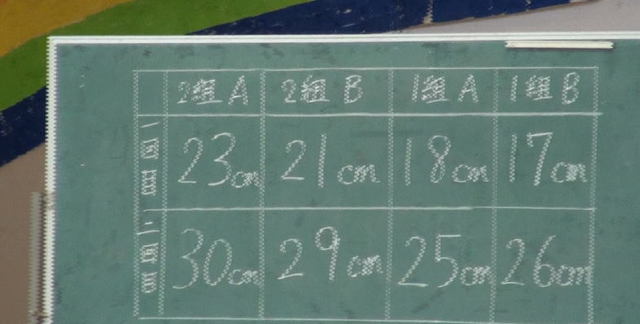 2組A 2組B 1組A 1組B
一回目 23cm 21cm 18cm 17cm
二回目 30cm 29cm 25cm 26cm